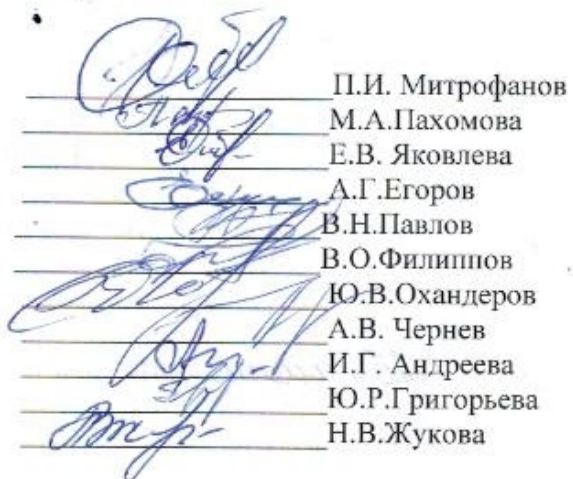 П.И. Митрофанов
М.А.Пахомова
Е.В. Яковлева
А.Г.Егоров
В.Н.Павлов
В.О.Филиппов
Ю.В.Охандеров
А.В. Чернев
И.Г. Андреева
Ю.Р.Григорьева
Н.В.Жукова